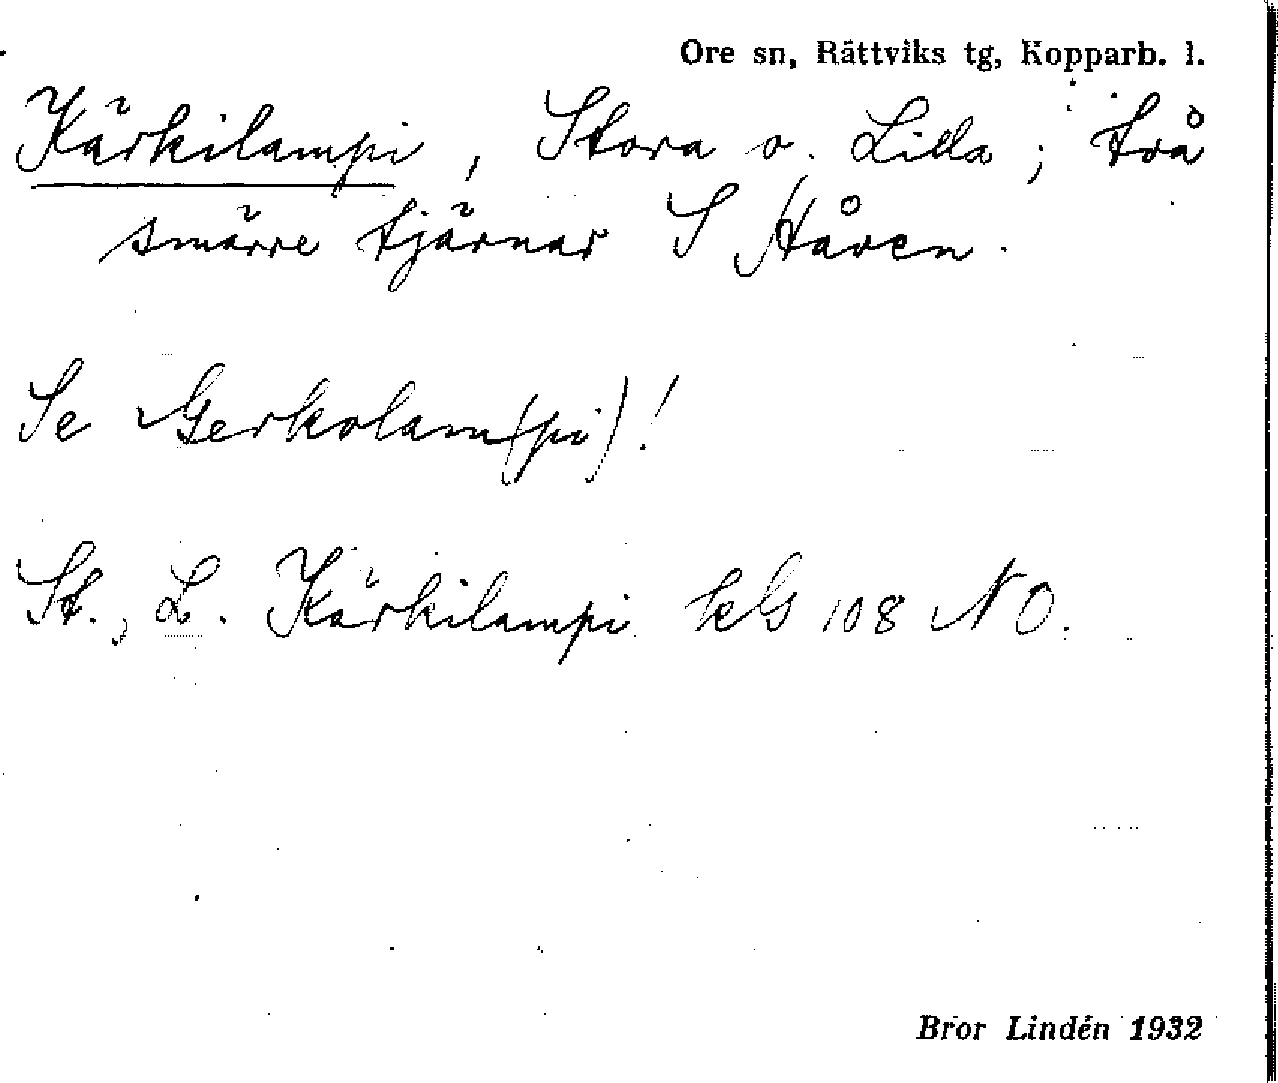 Ore sn, Rättviks tg, Kopparb. l.
Kärkilampi, Stora o. Lilla; två
smärre tjärnar S Håven.
Se Gerkolam(pi)!
St., L. Kärkilampi kG 108 NO.
Bror Lindén 1932